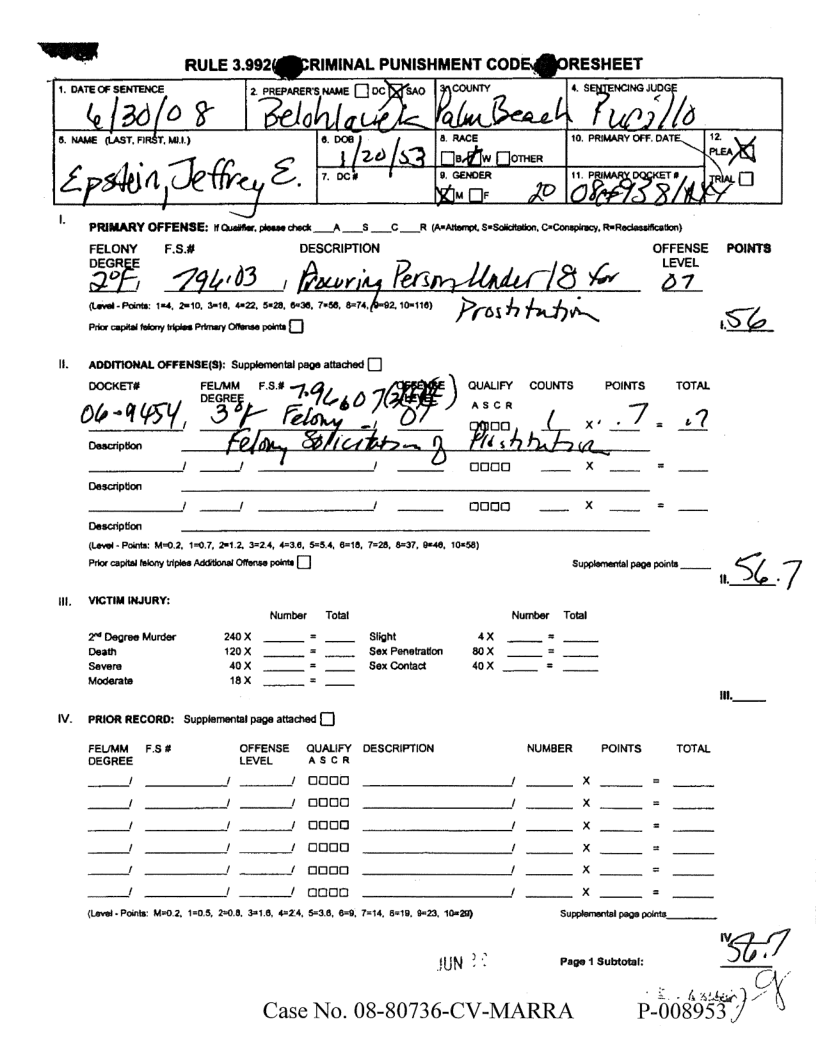 RULE 3.992( CRIMINAL PUNISHMENT CODE ORESHEET
1. DATE OF SENTENCE 6/30/08
2. PREPARER'S NAME DC SAO Belohlavek
3. COUNTY Palm Beach
4. SENTENCING JUDGE Pucillo
5. NAME (LAST, FIRST, MI.I.) Epstein, Jeffrey E.
6. DOB 1/20/53
7. DC#
8. RACE B W OTHER
9. GENDER M F 20
10. PRIMARY OFF. DATE
11. PRIMARY DOCKET #
12. PLEA TRIAL
I. PRIMARY OFFENSE: If Qualifier, please check ___A ___S ___C ___R (A=Attempt, S=Solicitation, C=Conspiracy, R=Reclassification)
FELONY DEGREE F.S.# DESCRIPTION OFFENSE LEVEL POINTS
2°F, 796.03, Procuring Person Under 18 for 07
(Level - Points: 1=4, 2=10, 3=16, 4=22, 5=28, 6=36, 7=56, 8=74, 9=92, 10=116) Prostitution
Prior capital felony triples Primary Offense points I. 56
II. ADDITIONAL OFFENSE(S): Supplemental page attached
DOCKET# FEL/MM DEGREE F.S.# OFFENSE LEVEL QUALIFY A S C R COUNTS POINTS TOTAL
06-9454, 3°F Felony 796.07 1 X .7 = .7
Description Felony Solicitation of Prostitution
/ / / X =
Description
/ / / X =
Description
(Level - Points: M=0.2, 1=0.7, 2=1.2, 3=2.4, 4=3.6, 5=5.4, 6=18, 7=28, 8=37, 9=46, 10=58)
Prior capital felony triples Additional Offense points Supplemental page points II. 56.7
III. VICTIM INJURY:
Number Total Number Total
2nd Degree Murder 240 X = Slight 4 X =
Death 120 X = Sex Penetration 80 X =
Severe 40 X = Sex Contact 40 X =
Moderate 18 X =
III.
IV. PRIOR RECORD: Supplemental page attached
FEL/MM DEGREE F.S # OFFENSE LEVEL QUALIFY A S C R DESCRIPTION NUMBER POINTS TOTAL
/ / / / X =
/ / / / X =
/ / / / X =
/ / / / X =
/ / / / X =
/ / / / X =
(Level - Points: M=0.2, 1=0.5, 2=0.8, 3=1.6, 4=2.4, 5=3.6, 6=9, 7=14, 8=19, 9=23, 10=29) Supplemental page points
IV. 56.7
JUN Page 1 Subtotal:
Case No. 08-80736-CV-MARRA P-008953